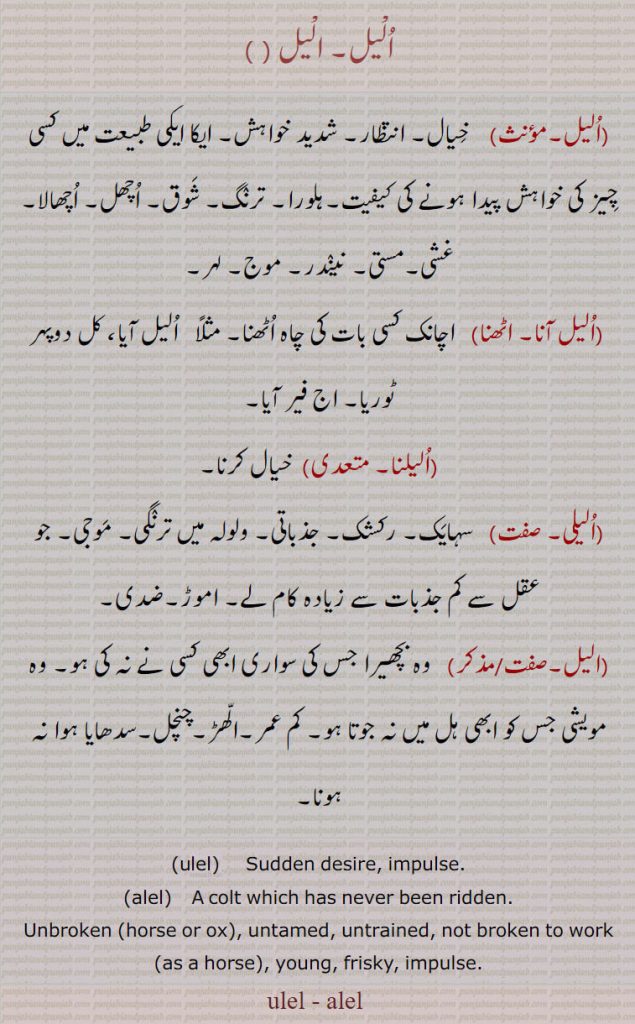 اُلْیل۔ الْیل ( )
(اُلیل۔مؤنث) خِیال۔ انتظار۔ شدید خواہش۔ ایکا ایکی طبیعت میں کسی
چِیز کی خواہش پیدا ہونے کی کیفیت۔ہلورا۔ ترنگ۔ شَوق۔ اُچھل۔ اُچھالا۔
غشی۔مستی۔ نیِنْدر۔ موج۔ لہر۔
(اُلیل آنا۔ اٹھنا) اچانک کسی بات کی چاہ اُٹھنا۔ مثلاً اُلیل آیا، کل دوپہر
ٹوریا۔ اج فیر آیا۔
(اُلیلنا۔ متعدی) خیال کرنا۔
(اُلیلی۔ صفت) سہایَک۔ رکشک۔ جذباتی۔ ولولہ میں ترنگی۔ مَوجی۔ جو
عقل سے کم جذبات سے زیادہ کام لے۔ اموڑ۔ضدی۔
(الیل۔صفت/مذکر) وہ بچھیرا جس کی سواری ابھی کسی نے نہ کی ہو۔ وہ
مویشی جس کو ابھی ہل میں نہ جوتا ہو۔ کم عمر۔الّھڑ۔چنچل۔سدھایا ہوا نہ
ہونا۔
(ulel) Sudden desire, impulse.
(alel) A colt which has never been ridden.
Unbroken (horse or ox), untamed, untrained, not broken to work
(as a horse), young, frisky, impulse.
ulel - alel